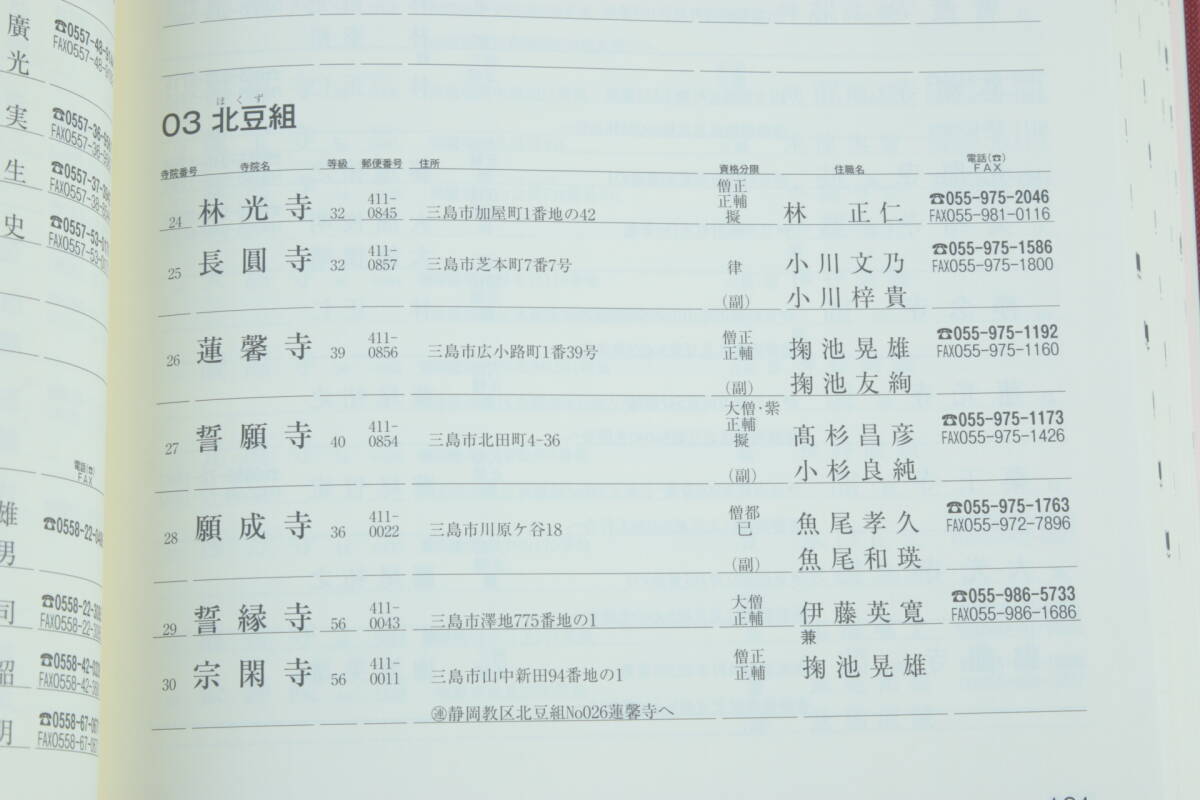 廣
光
☎0557-48-
FAX0557-48-
実
☎0557-36-
FAX0557-36-
生
☎0557-37-
FAX0557-37-
史
☎0557-53-
FAX0557-53-
電話(☎)
FAX
雄
男
☎0558-22-
司
☎0558-22-
FAX0558-22-
昭
☎0558-42-
FAX0558-42-
明
☎0558-67-
FAX0558-67-
ほくず
03 北豆組
寺院番号 寺院名 等級 郵便番号 住所 資格分限 住職名 電話(☎) FAX
24 林光寺 32 411-0845 三島市加屋町1番地の42 僧正 正輔 擬 林 正仁 ☎055-975-2046
FAX055-981-0116
25 長圓寺 32 411-0857 三島市芝本町7番7号 律 小川文乃 ☎055-975-1586
FAX055-975-1800
(副) 小川梓貴
26 蓮馨寺 39 411-0856 三島市広小路町1番39号 僧正 正輔 掬池晃雄 ☎055-975-1192
FAX055-975-1160
(副) 掬池友絢
27 誓願寺 40 411-0854 三島市北田町4-36 大僧・紫 正輔 擬 髙杉昌彦 ☎055-975-1173
FAX055-975-1426
(副) 小杉良純
28 願成寺 36 411-0022 三島市川原ケ谷18 僧都 已 魚尾孝久 ☎055-975-1763
FAX055-972-7896
(副) 魚尾和瑛
29 誓縁寺 56 411-0043 三島市澤地775番地の1 大僧 正輔 伊藤英寛 ☎055-986-5733
FAX055-986-1686
兼
30 宗閑寺 56 411-0011 三島市山中新田94番地の1 僧正 正輔 掬池晃雄
㊟静岡教区北豆組No026蓮馨寺へ